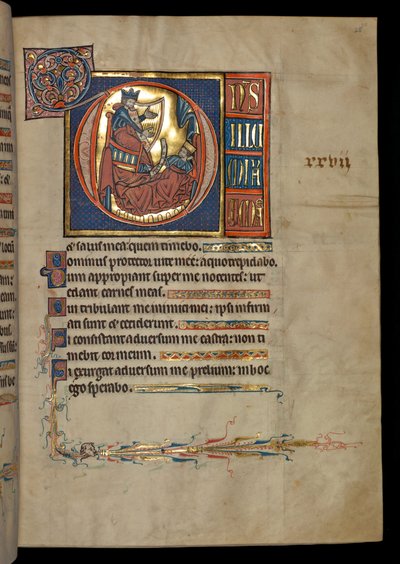 D NS
ILLU
xxvij
& salus mea: quem timebo.
Dominus protector uite mee: a quo trepidabo.
Dum appropiant super me nocentes: ut
edant carnes meas.
Qui tribulant me inimici mei: ipsi infirm
ati sunt & ceciderunt.
Si consistant aduersum me castra: non ti
mebit cor meum.
Si exurgat aduersum me prelium: in hoc
ego sperabo.